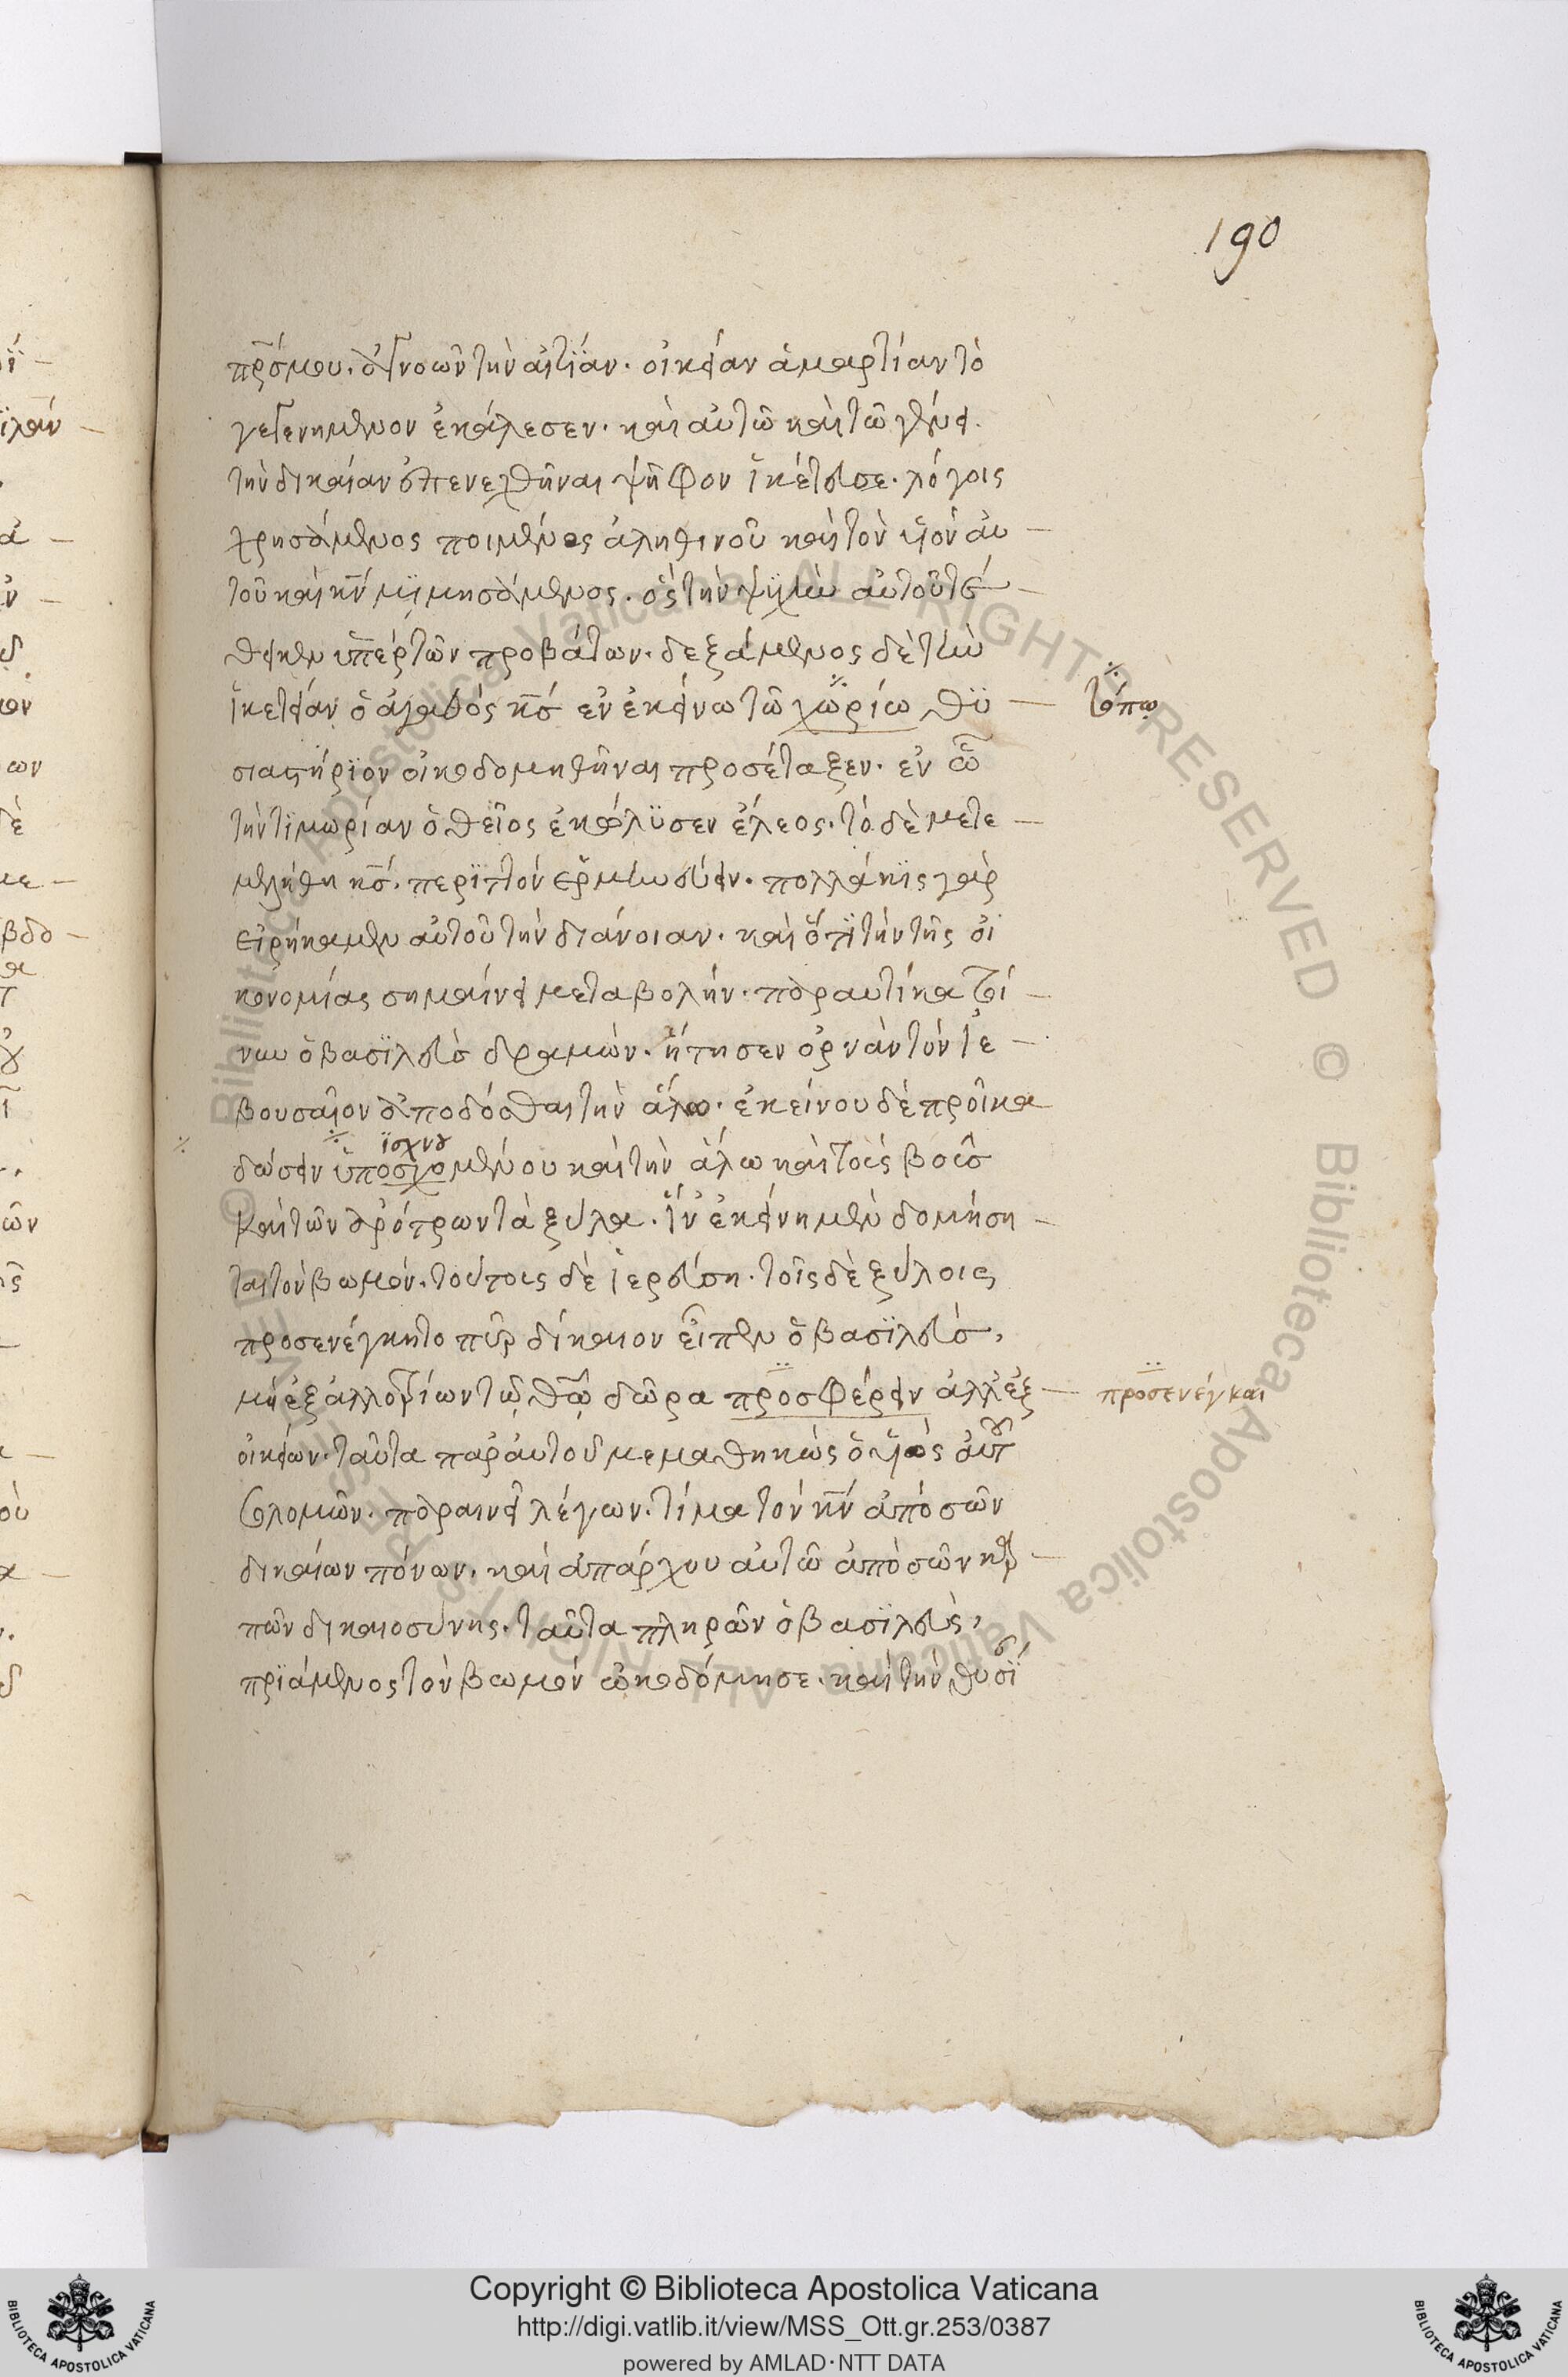 190
πρ̅ς μου. ἀγνοῶν τὴν αἰτίαν. οἰκείαν ἁμαρτίαν τὸ
γεγενημένον ἐκάλεσεν. καὶ αὐτῶ καὶ τῶ γένει
τὴν δικαίαν ἐπενεχθῆναι ψῆφον ἱκέτευσε. λόγοις
χρησάμενος ποιμένος ἀληθινοῦ καὶ τὸν υἱὸν αὐ
τοῦ καὶ κ̅ν μιμησάμενος. ὃς τὴν ψυχὴν αὐτοῦ τέ
θεικεν ὑπὲρ τῶν προβάτων. δεξάμενος δὲ τὴν
ἱκετείαν ὁ ἀγαθὸς κ̅ς ἐν ἐκείνω τῶ χωρίω θυ
τόπω
σιαστήριον οἰκοδομηθῆναι προσέταξεν. ἐν ὧ
τὴν τιμωρίαν ὁ θεῖος ἐκώλυσεν ἔλεος. τὸ δὲ μετε
μελήθη κ̅ς. περιττὸν ἑρμηνεύειν. πολλάκις γὰρ
εἰρήκαμεν αὐτοῦ τὴν διάνοιαν. καὶ ὅτι τὴν τῆς οἰ
κονομίας σημαίνει μεταβολήν. παραυτίκα τοί
νυν ὁ βασιλεὺς δραμών. ἤτησεν ὀρνὰν τὸν ἰε
βουσαῖον ἀποδόσθαι τὴν ἅλω. ἐκείνου δὲ προῖκα
ϊσχνου
δώσειν ὑποσχομένου καὶ τὴν ἅλω καὶ τοὺς βοῦς
καὶ τῶν ἀρότρων τὰ ξύλα. ἵν ἐκείνη μὲν δομήση
ται τὸν βωμόν. τούτοις δὲ ἱερεύση. τοῖς δὲ ξύλοις
προσενέγκητο πῦρ δίκαιον εἶπεν ὁ βασιλεὺς,
μὴ ἐξ ἀλλοτρίων τῶ θ̅ω δῶρα προσφέρειν ἀλλ ἐξ
προσενέγκαι
οἰκείων. ταῦτα παρ αὐτοῦ μεμαθηκὼς ὁ υἱὸς αὐτοῦ
σολομῶν. παραινεῖ λέγων. τίμα τὸν κ̅ν ἀπὸ σῶν
δικαίων πόνων. καὶ ἀπάρχου αὐτῶ ἀπὸ σῶν καρ
πῶν δικαιοσύνης. ταῦτα πληρῶν ὁ βασιλεὺς,
πριάμενος τὸν βωμὸν ὠκοδόμησε. καὶ τὴν θυσί
Copyright © Biblioteca Apostolica Vaticana
http://digi.vatlib.it/view/MSS_Ott.gr.253/0387
powered by AMLAD·NTT DATA